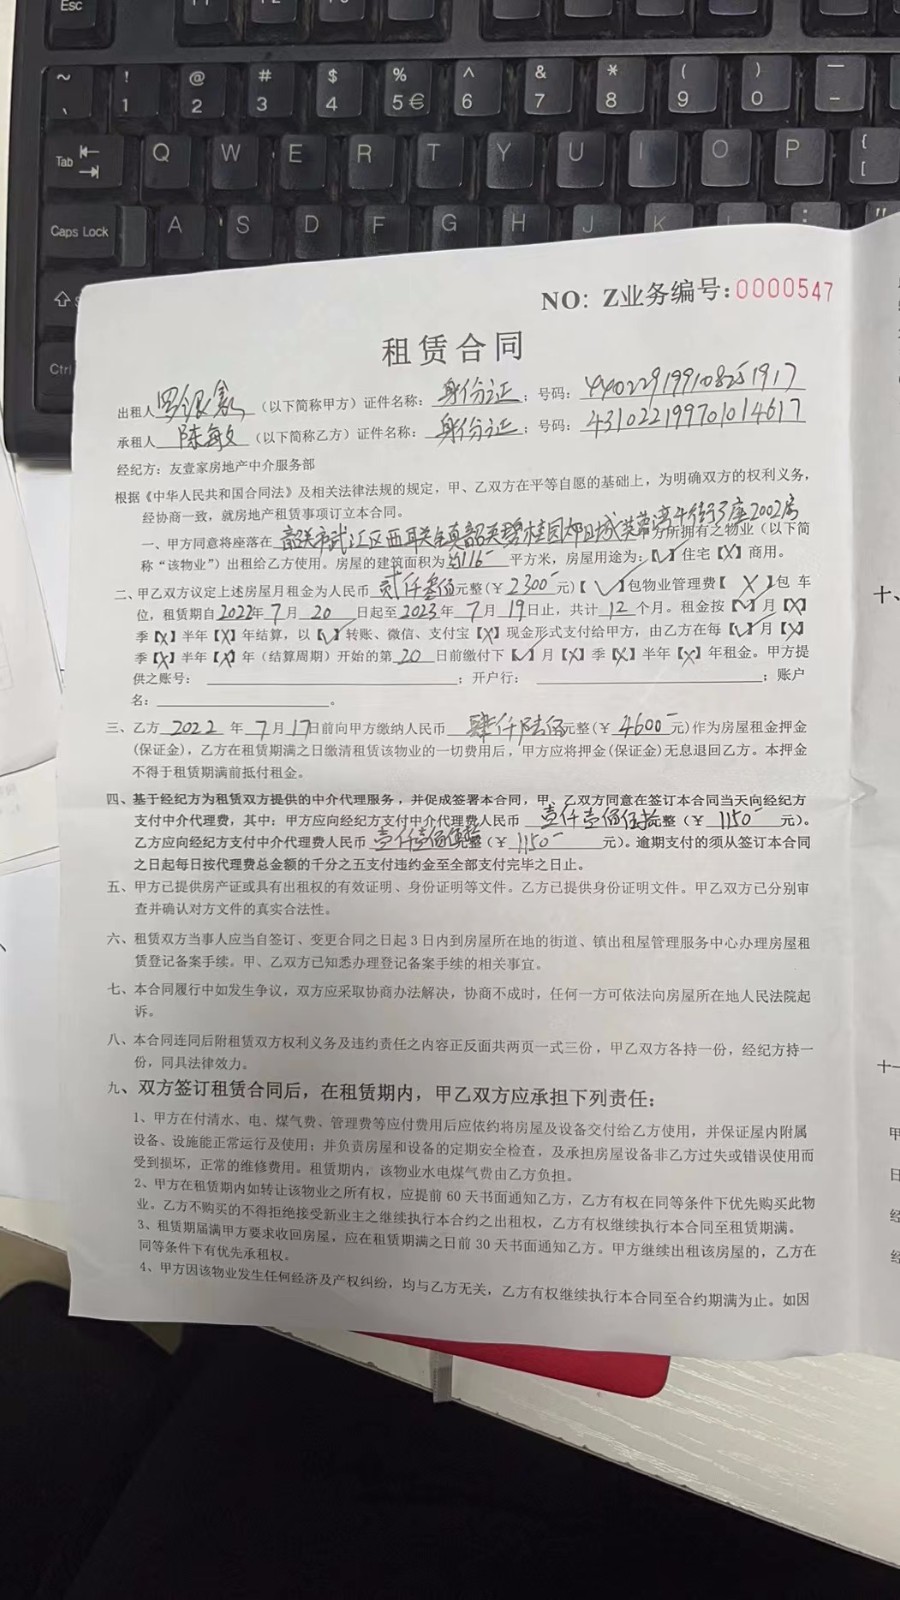 Esc
~ ! @ # $ % ^ & * ( ) —
、 1 2 3 4 5 € 6 7 8 9 0 -
Tab Q W E R T Y U I O P { [
Caps Lock A S D F G H J K L : "
Ctrl
NO: Z业务编号:0000547
租赁合同
出租人 罗银鑫 (以下简称甲方)证件名称: 身份证 ; 号码: 440229199108251917
承租人 陈敏 (以下简称乙方)证件名称: 身份证 ; 号码: 431022199701014617
经纪方: 友壹家房地产中介服务部
根据《中华人民共和国合同法》及相关法律法规的规定,甲、乙双方在平等自愿的基础上,为明确双方的权利义务,
经协商一致,就房地产租赁事项订立本合同。
一、甲方同意将座落在 韶关市武江区西联镇韶关碧桂园 芙蓉湾 街3座2002房 所拥有之物业(以下简
称“该物业”)出租给乙方使用。房屋的建筑面积为 约116 平方米,房屋用途为:【√】住宅【X】商用。
二、甲乙双方议定上述房屋月租金为人民币 贰仟叁佰 元整(¥ 2300 元)【√】包物业管理费【X】包 车
位,租赁期自 2022 年 7 月 20 日起至 2023 年 7 月 19 日止,共计 12 个月。租金按【√】月【X】
季【X】半年【X】年结算,以【√】转账、微信、支付宝【X】现金形式支付给甲方,由乙方在每【√】月【X】
季【X】半年【X】年(结算周期)开始的第 20 日前缴付下【√】月【X】季【X】半年【X】年租金。甲方提
供之账号: ;开户行: ;账户
名: 。
三、乙方 2022 年 7 月 17 日前向甲方缴纳人民币 肆仟陆佰 元整(¥ 4600 元)作为房屋租金押金
(保证金),乙方在租赁期满之日缴清租赁该物业的一切费用后,甲方应将押金(保证金)无息退回乙方。本押金
不得于租赁期满前抵付租金。
四、基于经纪方为租赁双方提供的中介代理服务,并促成签署本合同,甲、乙双方同意在签订本合同当天向经纪方
支付中介代理费,其中: 甲方应向经纪方支付中介代理费人民币 壹仟壹佰伍拾 整(¥ 1150 元)。
乙方应向经纪方支付中介代理费人民币 壹仟壹佰伍拾 整(¥ 1150 元)。逾期支付的须从签订本合同
之日起每日按代理费总金额的千分之五支付违约金至全部支付完毕之日止。
五、甲方已提供房产证或具有出租权的有效证明、身份证明等文件。乙方已提供身份证明文件。甲乙双方已分别审
查并确认对方文件的真实合法性。
六、租赁双方当事人应当自签订、变更合同之日起 3 日内到房屋所在地的街道、镇出租屋管理服务中心办理房屋租
赁登记备案手续。甲、乙双方已知悉办理登记备案手续的相关事宜。
七、本合同履行中如发生争议,双方应采取协商办法解决,协商不成时,任何一方可依法向房屋所在地人民法院起
诉。
八、本合同连同后附租赁双方权利义务及违约责任之内容正反面共两页一式三份,甲乙双方各持一份,经纪方持一
份,同具法律效力。
九、双方签订租赁合同后,在租赁期内,甲乙双方应承担下列责任:
1、甲方在付清水、电、煤气费、管理费等应付费用后应依约将房屋及设备交付给乙方使用,并保证屋内附属
设备、设施能正常运行及使用; 并负责房屋和设备的定期安全检查,及承担房屋设备非乙方过失或错误使用而
受到损坏,正常的维修费用。租赁期内,该物业水电煤气费由乙方负担。
2、甲方在租赁期内如转让该物业之所有权,应提前 60 天书面通知乙方,乙方有权在同等条件下优先购买此物
业。乙方不购买的不得拒绝接受新业主之继续执行本合约之出租权,乙方有权继续执行本合同至租赁期满。
3、租赁期届满甲方要求收回房屋,应在租赁期满之日前 30 天书面通知乙方。甲方继续出租该房屋的,乙方在
同等条件下有优先承租权。
4、甲方因该物业发生任何经济及产权纠纷,均与乙方无关,乙方有权继续执行本合同至合约期满为止。如因
十、
十一
甲
日
经
经